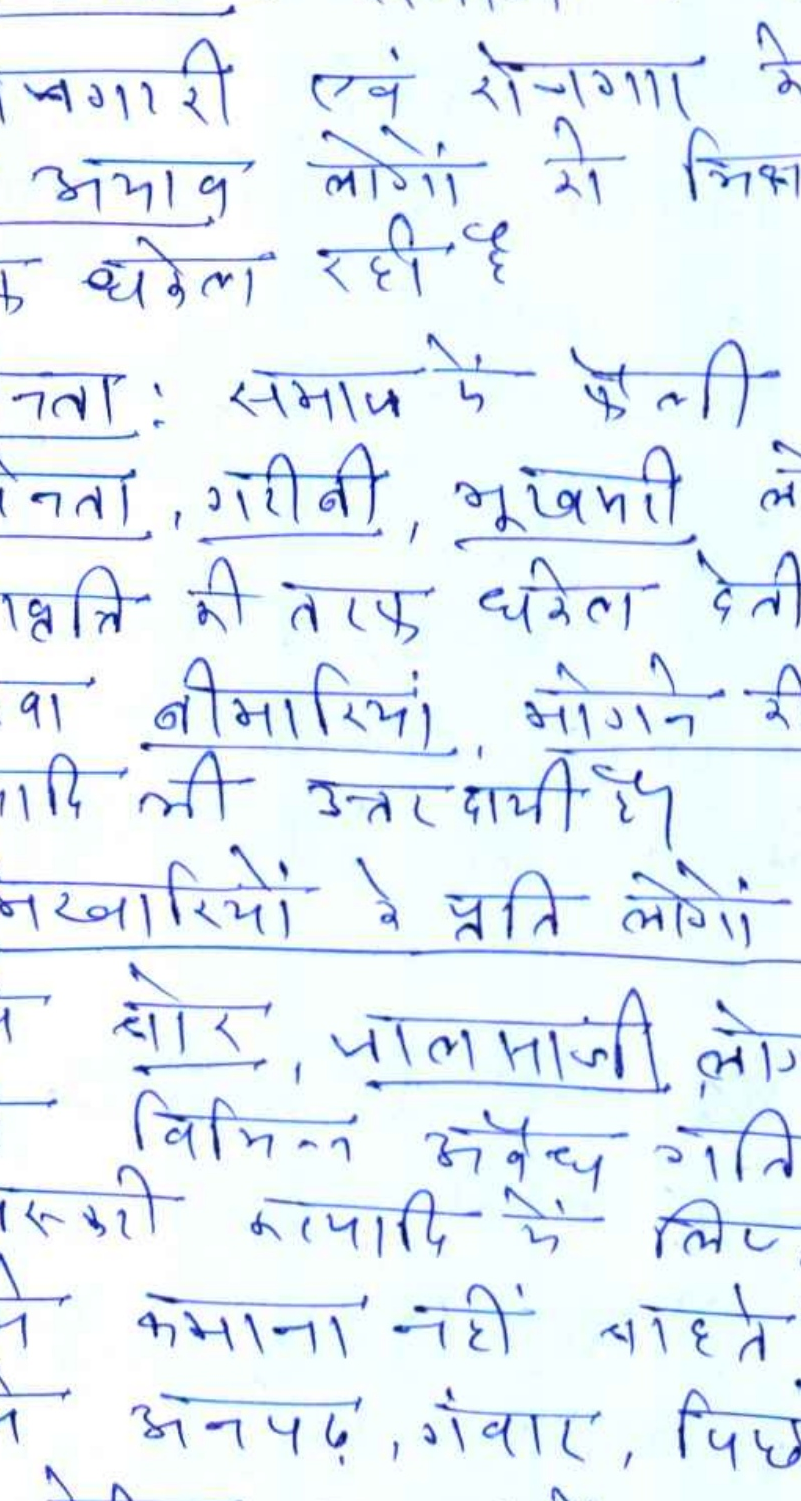 जगारी एवं रोजगार के
अभाव लोगों को भिक्षा
क धकेल रही है
नता: समाज में फैली
नता, गरीबी, भूखमरी लो
वृत्ति की तरफ धकेल देती
वा बीमारियां, मांगने की
ादि भी उत्तरदायी है।
भिखारियों के प्रति लोगों
चोर, जालसाजी लोग
विभिन्न अवैध गति
स्करी इत्यादि में लिप्
कमाना नहीं चाहते
अनपढ़, गंवार, पिछ